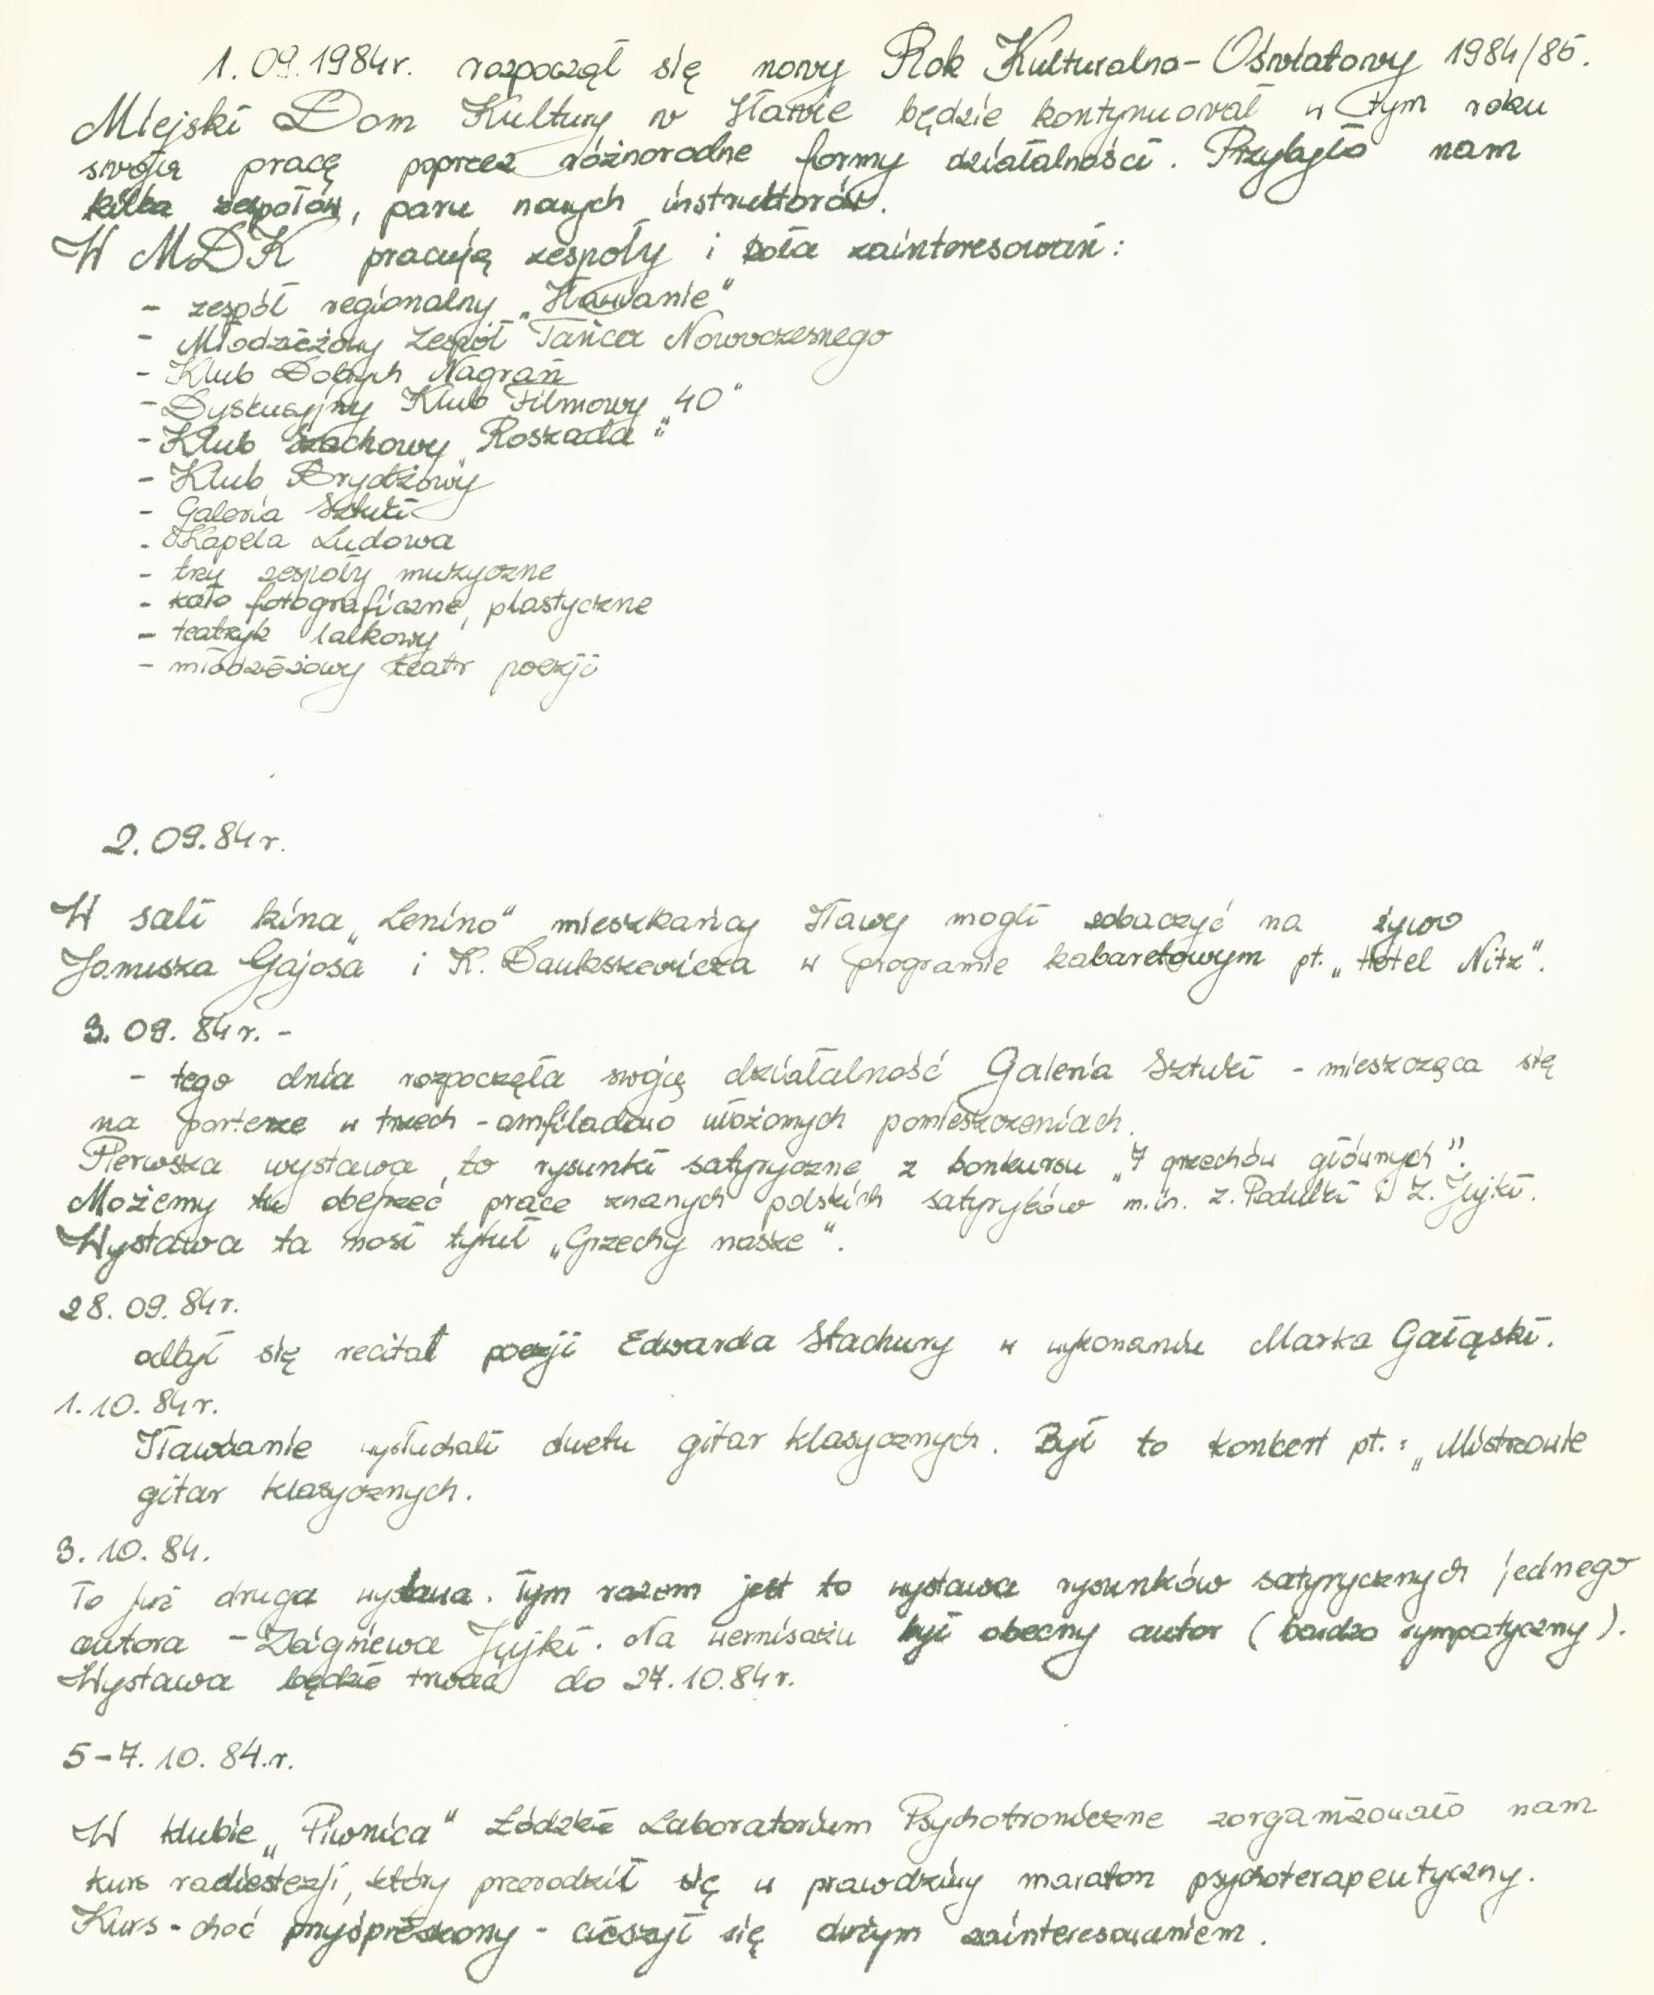 1.09.1984r. rozpoczął się nowy Rok Kulturalno-Oświatowy 1984/85.
Miejski Dom Kultury w Iławie będzie kontynuował w tym roku
swoją pracę poprzez różnorodne formy działalności. Przybyło nam
kilka zespołów, paru nowych instruktorów.
W MDK pracują zespoły i koła zainteresowań:
- zespół regionalny „Iławianie"
- Młodzieżowy Zespół Tańca Nowoczesnego
- Klub Dobrych Nagrań
- Dyskusyjny Klub Filmowy „40"
- Klub Szachowy „Roszada"
- Klub Brydżowy
- Galeria Sztuki
- Kapela Ludowa
- trzy zespoły muzyczne
- koło fotograficzne, plastyczne
- teatrzyk lalkowy
- młodzieżowy teatr poezji
2.09.84r.
W sali kina „Lenino" mieszkańcy Iławy mogli zobaczyć na żywo
Janusza Gajosa i K. Daukszewicza w programie kabaretowym pt. „Hotel Nitz".
3.09.84r. -
- tego dnia rozpoczęła swoją działalność Galeria Sztuki - mieszcząca się
na parterze w trzech - amfiladowo ułożonych pomieszczeniach.
Pierwsza wystawa, to rysunki satyryczne z konkursu „7 grzechów głównych".
Możemy tu obejrzeć prace znanych polskich satyryków m.in. Z. Padulki i Z. Jujki.
Wystawa ta nosi tytuł „Grzechy nasze".
28.09.84r.
odbył się recital poezji Edwarda Stachury w wykonaniu Marka Gałąski.
1.10.84r.
Iławianie wysłuchali duetu gitar klasycznych. Był to koncert pt.: „Mistrzowie
gitar klasycznych.
3.10.84.
To już druga wystawa. Tym razem jest to wystawa rysunków satyrycznych jednego
autora - Zbigniewa Jujki. Na wernisażu był obecny autor (bardzo sympatyczny).
Wystawa będzie trwać do 27.10.84r.
5-7.10.84.r.
W klubie „Piwnica" Łódzkie Laboratorium Psychotroniczne zorganizowało nam
kurs radiestezji, który przerodził się w prawdziwy maraton psychoterapeutyczny.
Kurs - choć przyśpieszony - cieszył się dużym zainteresowaniem.